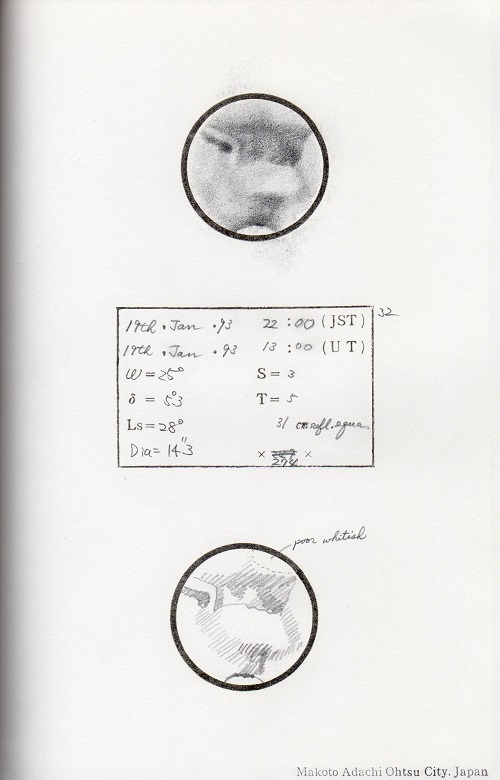 32
19th . Jan . 93 22 : 00 (JST)
19th . Jan . 93 13 : 00 (UT)
ω = 25° S = 3
δ = 5°.3 T = 5
Ls = 28° 31 cm refl. equa.
Dia = 14".3 × 274 ×
poor whitish
Makoto Adachi Ohtsu City, Japan